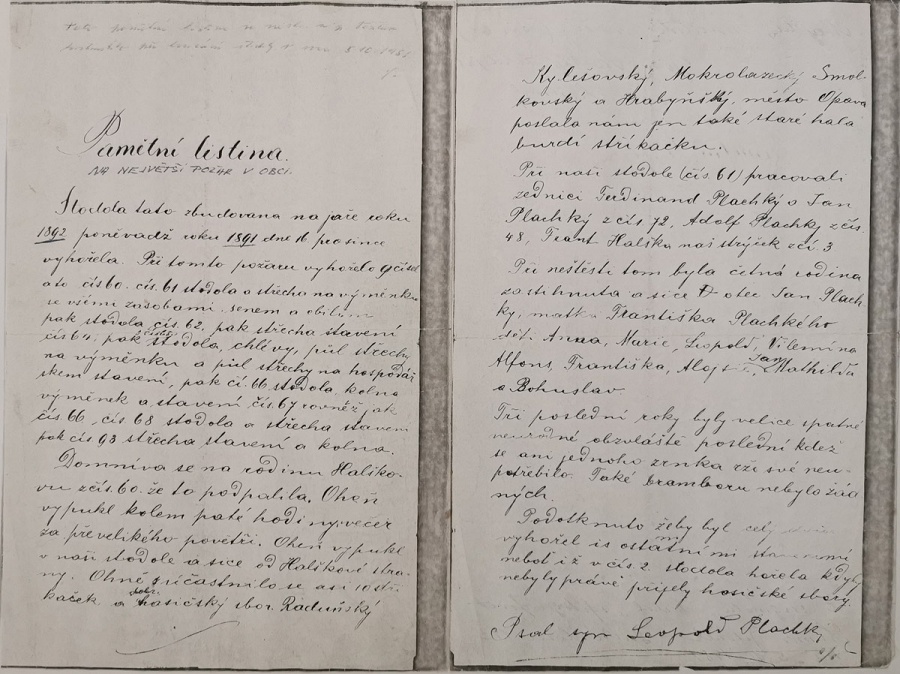 Tato pamětní listina
při bourání stodoly v
Pamětní listina.
NA NEJVĚTŠÍ POŽÁR V OBCI.
Stodola tato zbudovana na jaře roku
1892 poněvadž roku 1891 dne 16 prosince
vyhořela. Při tomto požaru vyhořelo 9 čísel
a to čís 60. čís. 61 stodola a střecha na výměnku
se všemi zásobami senem a obilim
pak stodola čís. 62, pak střecha stavení
čís 64, pak stodola, chlévy, půl střechy
na výměnku a půl střechy na hospodář
skem stavení, pak čí. 66 stodola kolna
výměnek a stavení, čís. 67 rovněž jak
čís. 66, čís 68 stodola a střecha stavení
pak čís 93 střecha stavení a kolna.
Domníva se na rodinu Halško-
vu z čís. 60. že to podpalila. Oheň
vypukl kolem paté hodiny večer
za převelikého povětří. Oheň vypukl
v naší stodole a sice od Halškové stra-
ny. Ohně súčastnilo se asi 10 stři-
kaček a hasičský sbor. Raduňský
Kylešovský, Mokrolazecký Smol-
kovský a Hrabyňský, město Opava
poslala nám jen také staré hala
burdí stříkačku.
Při naší stodole (čís 61) pracovali
zednici Ferdinand Plachký a Jan
Plachký z čís 72, Adolf Plachky z čís.
48, Frant Halška naš strýček z čí. 3
Při neštěstí tom byla četná rodina
zastihnuta a sice otec Jan Plach
ky, matka Františka Plachkého
děti Anna, Marie, Leopold, Vilemína
Alfons, Františka, Alojs Jan, Mathilda
a Bohuslav.
Tři poslední roky byly velice spatné
neurodné obzvláště poslední kdež
se ani jednoho zrnka rže své neu-
potřebilo. Také bramboru nebylo žád
ných.
Podotknuto žeby byl celý
vyhořel is ostatními
neboť iž v čís 2. stodola hořela kdyby
nebyly právě přijely hasičské sbory.
Psal syn Leopold Plachký